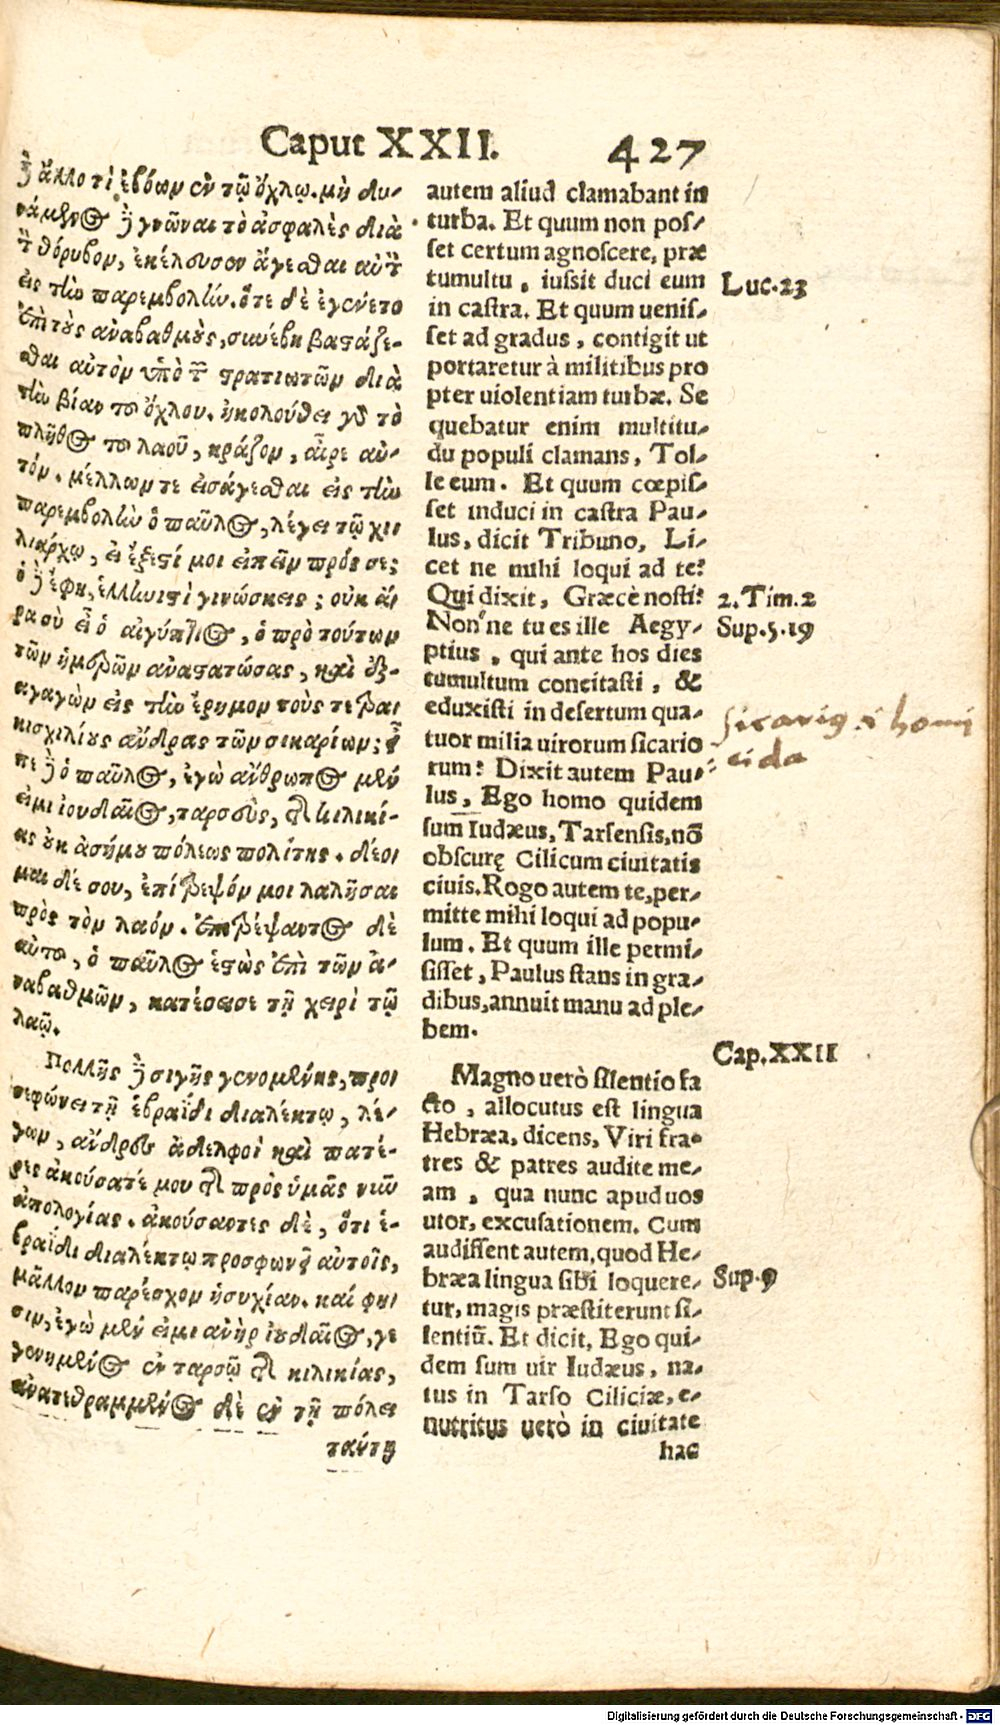 Caput XXII. 427
ἢ ἄλλο τὶ ἐβόων ἐν τῷ ὄχλῳ. μὴ δυ-
νάμενος ἢ γνῶναι τὸ ἀσφαλὲς διὰ
τὸν θόρυβον, ἐκέλευσεν ἄγεσθαι αὐτὸν
εἰς τὴν παρεμβολήν. ὅτε δὲ ἐγένετο
ἐπὶ τοὺς ἀναβαθμοὺς, συνέβη βαστάζε-
σθαι αὐτὸν ὑπὸ τῶν στρατιωτῶν διὰ
τὴν βίαν τοῦ ὄχλου. ἠκολούθει γὰρ τὸ
πλῆθος τοῦ λαοῦ, κράζον, αἶρε αὐ-
τόν. μέλλων τε εἰσάγεσθαι εἰς τὴν
παρεμβολὴν ὁ παῦλος, λέγει τῷ χι
λιάρχῳ, εἰ ἔξεστί μοι εἰπεῖν πρός σε;
ὁ δὲ ἔφη, ἑλληνιστὶ γινώσκεις; οὐκ ἄ
ρα σὺ εἶ ὁ αἰγύπτιος, ὁ πρὸ τούτων
τῶν ἡμερῶν ἀναστατώσας, καὶ ἐξ-
αγαγὼν εἰς τὴν ἔρημον τοὺς τετρα
κισχιλίους ἄνδρας τῶν σικαρίων; εἶ
πε δὲ ὁ παῦλος, ἐγὼ ἄνθρωπος μέν
εἰμι ἰουδαῖος, ταρσεὺς, τῆς κιλικί-
ας οὐκ ἀσήμου πόλεως πολίτης. δέο
μαι δέ σου, ἐπίτρεψόν μοι λαλῆσαι
πρὸς τὸν λαόν. ἐπιτρέψαντος δὲ
αὐτοῦ, ὁ παῦλος ἑστὼς ἐπὶ τῶν ἀ-
ναβαθμῶν, κατέσεισε τῇ χειρὶ τῷ
λαῷ.
Πολλῆς δὲ σιγῆς γενομένης, προ
σεφώνει τῇ ἑβραΐδι διαλέκτῳ, λέ-
γων, ἄνδρες ἀδελφοὶ καὶ πατέ-
ρες ἀκούσατέ μου τῆς πρὸς ὑμᾶς νῦν
ἀπολογίας. ἀκούσαντες δὲ, ὅτι ἑ-
βραΐδι διαλέκτῳ προσφωνεῖ αὐτοῖς,
μᾶλλον παρέσχον ἡσυχίαν. καί φη
σιν, ἐγὼ μέν εἰμι ἀνὴρ ἰουδαῖος, γε
γενημένος ἐν ταρσῷ τῆς κιλικίας,
ἀνατεθραμμένος δὲ ἐν τῇ πόλει
ταύτῃ
autem aliud clamabant in
turba. Et quum non pos-
set certum agnoscere, præ
tumultu, iussit duci eum
in castra. Et quum uenis-
set ad gradus, contigit ut
portaretur à militibus pro
pter uiolentiam turbæ. Se
quebatur enim multitu-
do populi clamans, Tol-
le eum. Et quum cœpis-
set induci in castra Pau-
lus, dicit Tribuno, Li-
cet ne mihi loqui ad te?
Qui dixit, Græcè nosti?
Non'ne tu es ille Aegy-
ptius, qui ante hos dies
tumultum concitasti, &
eduxisti in desertum qua-
tuor milia uirorum sicario
rum? Dixit autem Pau-
lus, Ego homo quidem
sum Iudæus, Tarsensis, nõ
obscurę Cilicum ciuitatis
ciuis. Rogo autem te, per-
mitte mihi loqui ad popu-
lum. Et quum ille permi-
sisset, Paulus stans in gra-
dibus, annuit manu ad ple-
bem.
Magno uerò silentio fa
cto, allocutus est lingua
Hebræa, dicens, Viri fra-
tres & patres audite me-
am, qua nunc apud uos
utor, excusationem. Cum
audissent autem, quod He-
bræa lingua sibi loquere-
tur, magis præstiterunt si-
lentiũ. Et dicit, Ego qui-
dem sum uir Iudæus, na-
tus in Tarso Ciliciæ, e-
nutritus uerò in ciuitate
hac
Luc. 23
2. Tim. 2
Sup. 5. 19
sicarius .i. homi
cida
Cap. XXII
Sup. 9
Digitalisierung gefördert durch die Deutsche Forschungsgemeinschaft - DFG